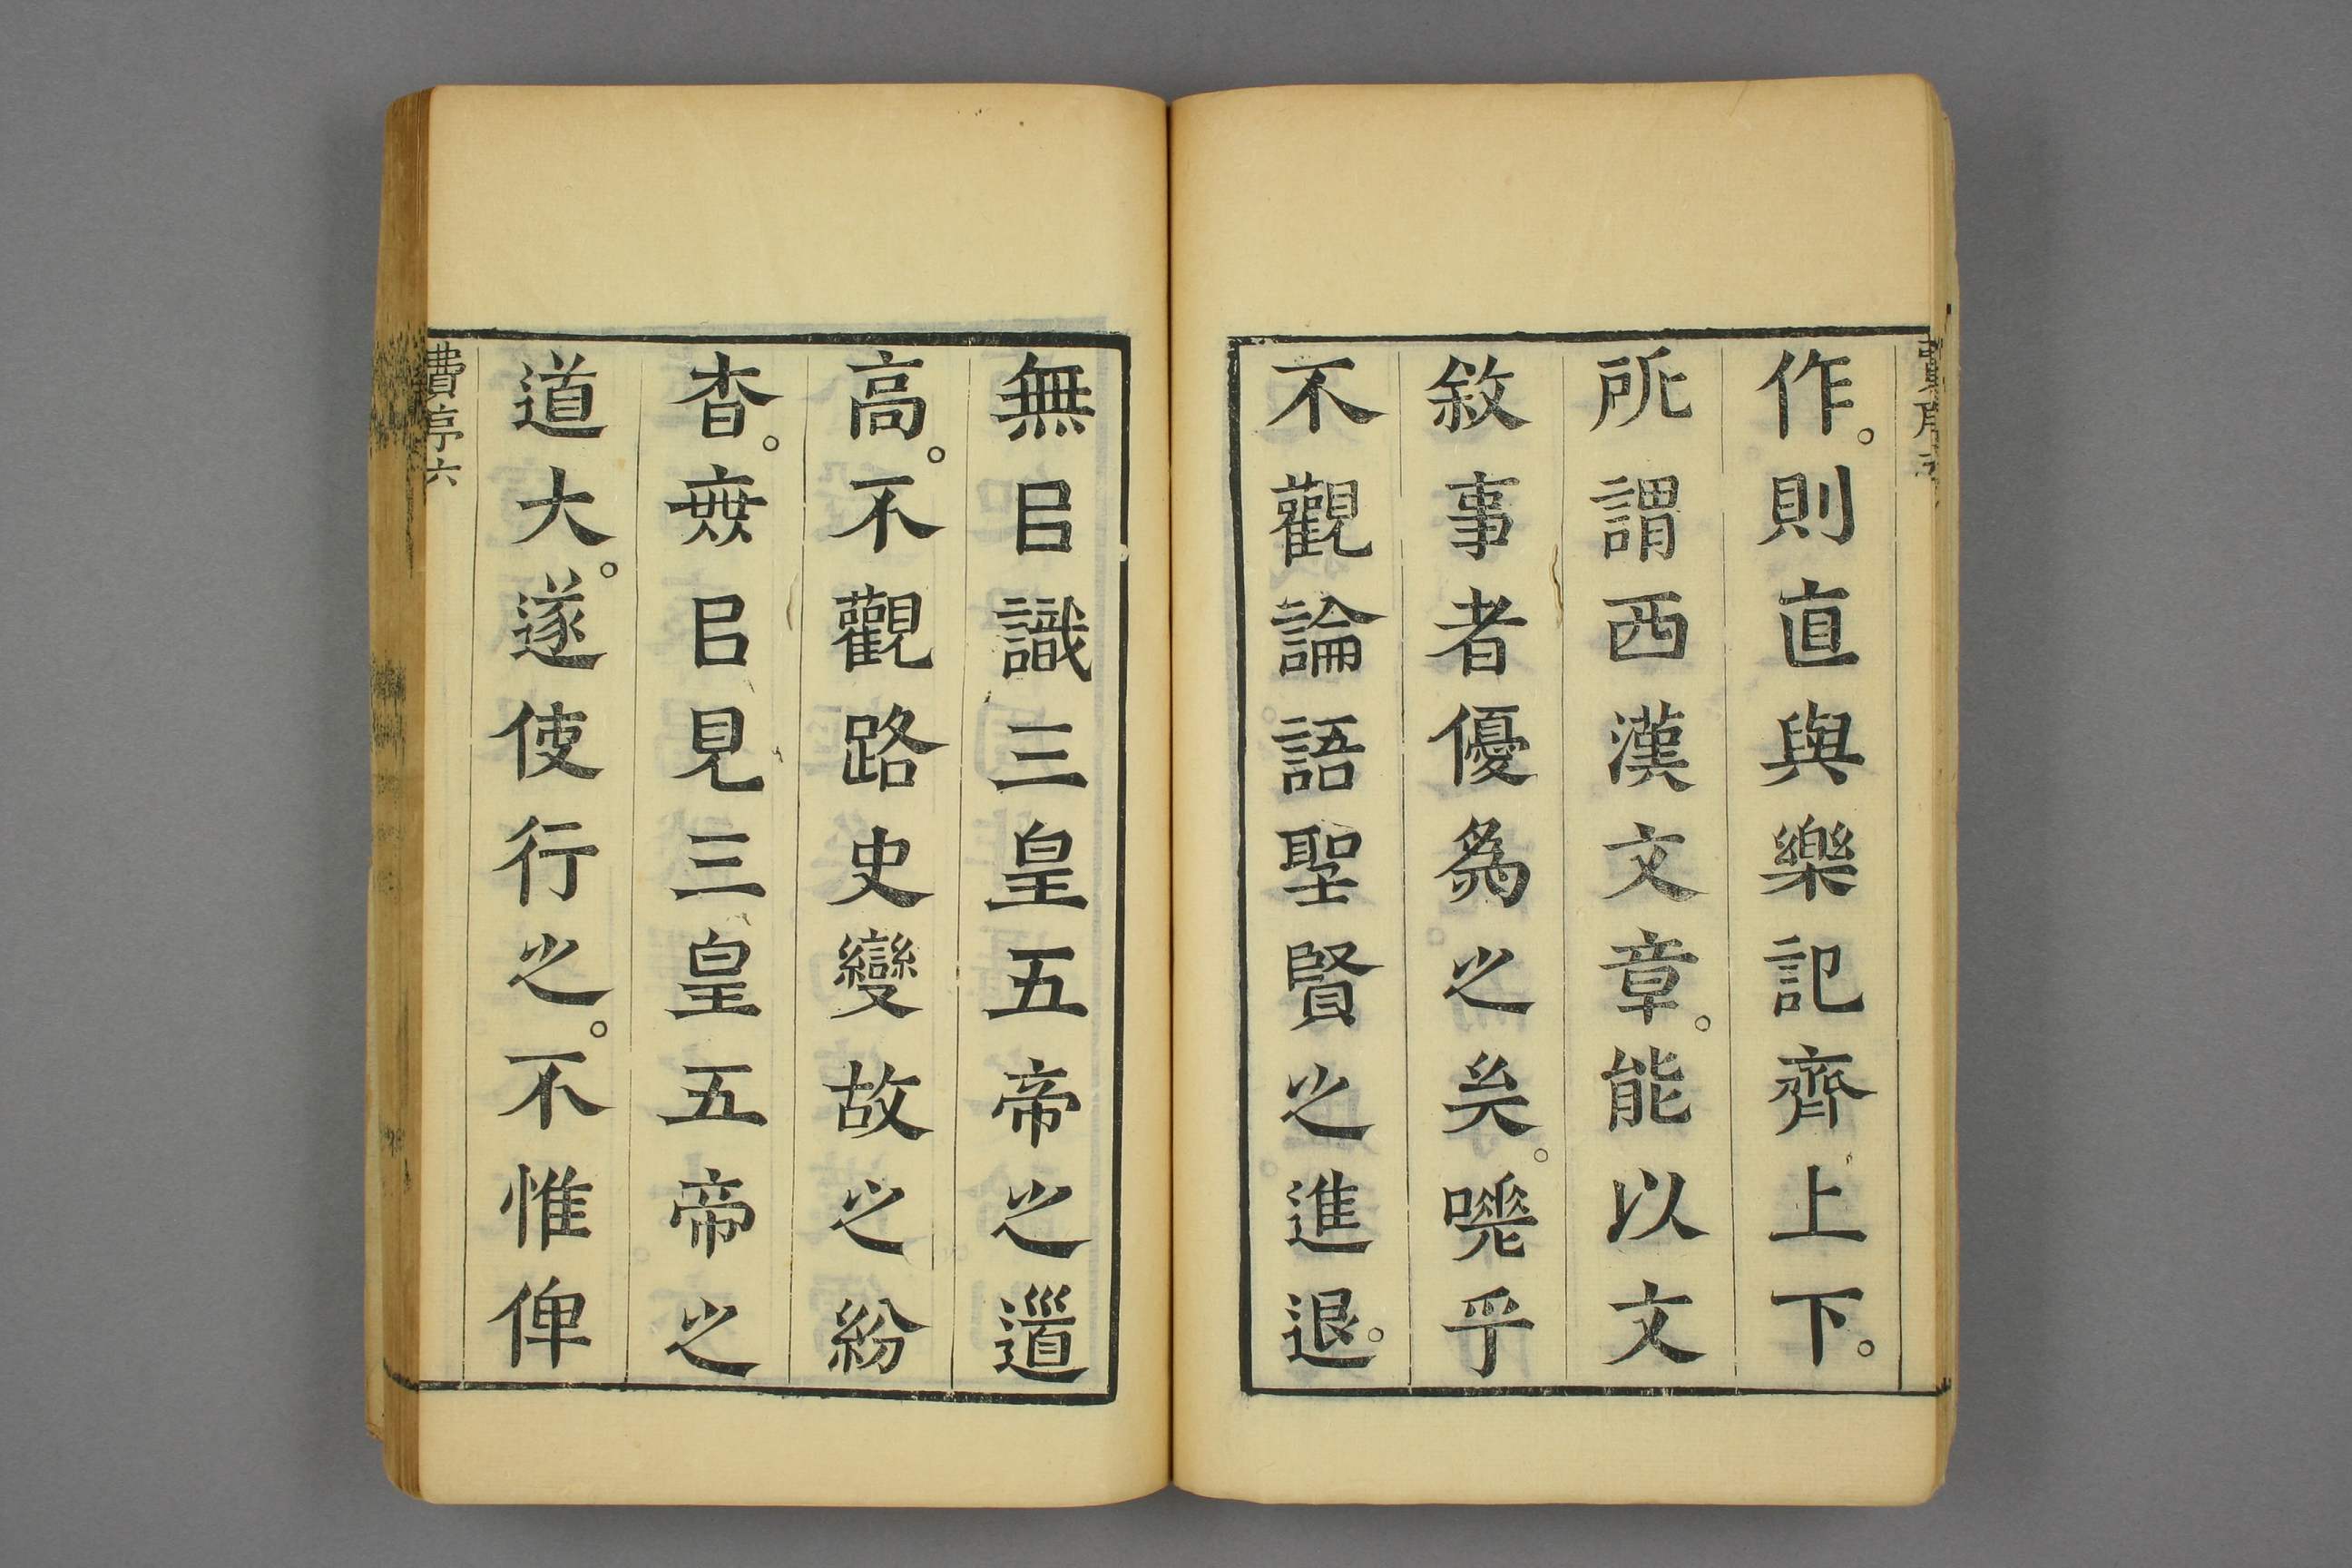 作。則直與樂記齊上下。
所謂西漢文章。能以文
敘事者優為之矣。嘰乎
不觀論語聖賢之進退。
無㠯識三皇五帝之邎
高。不觀路史變故之紛
杳。無㠯見三皇五帝之
道大。遂使行之。不惟俾
費序六